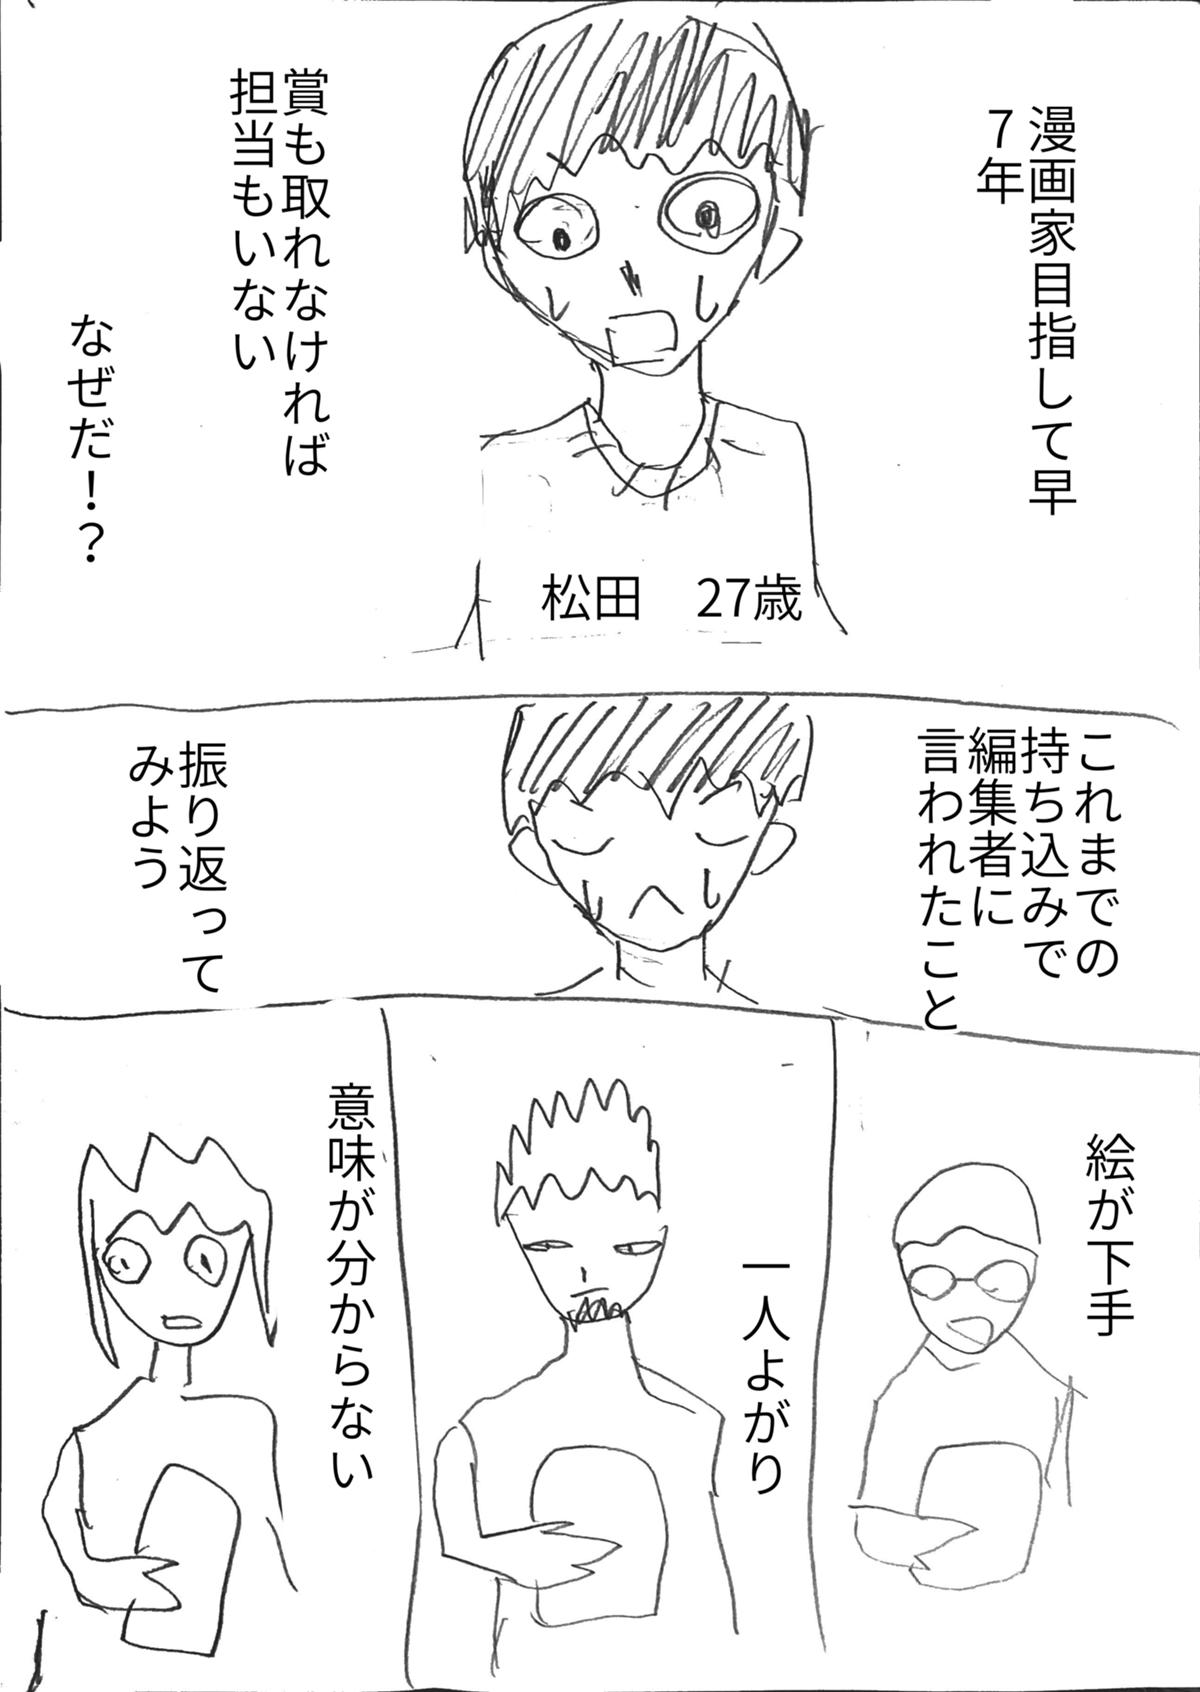 漫画家目指して早
7年
賞も取れなければ
担当もいない
なぜだ!?
松田　27歳
これまでの
持ち込みで
編集者に
言われたこと
振り返って
みよう
絵が下手
一人よがり
意味が分からない